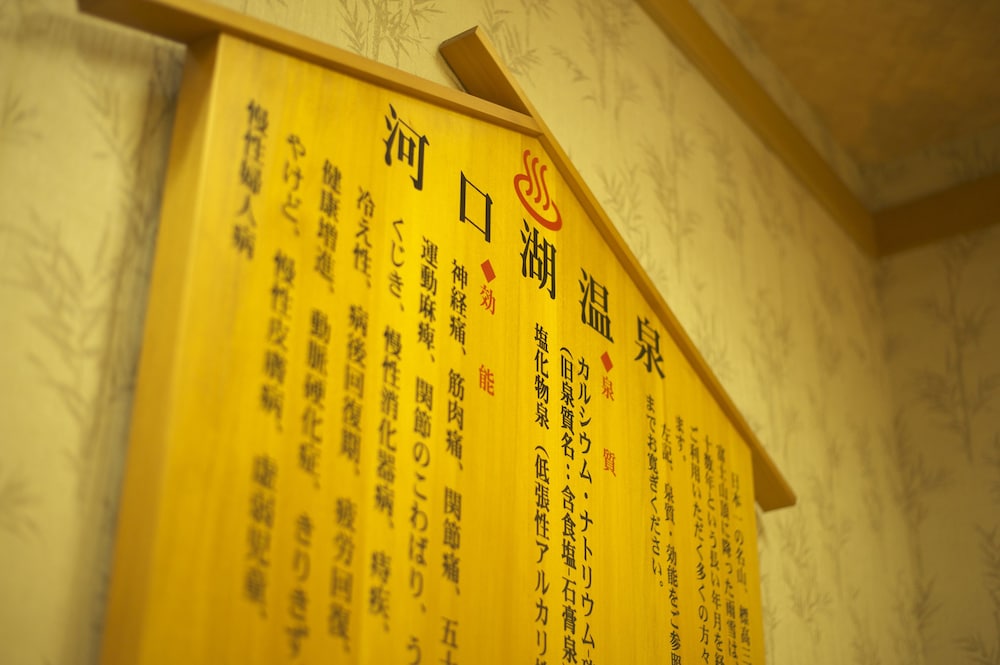 河口湖温泉
日本一の名山、標高三
富士山頂に降った雨雪は、
十数年という長い年月を経
ご利用いただく多くの方々
ます。
左記、泉質・効能をご参照
までお寛ぎください。
◆泉質
カルシウム・ナトリウム
(旧泉質名:含食塩-石膏泉
塩化物泉 (低張性アルカリ
◆効能
神経痛、筋肉痛、関節痛、五十
運動麻痺、関節のこわばり、う
くじき、慢性消化器病、痔疾、
冷え性、病後回復期、疲労回復、
健康増進、動脈硬化症、きりきず
やけど、慢性皮膚病、虚弱児童、
慢性婦人病